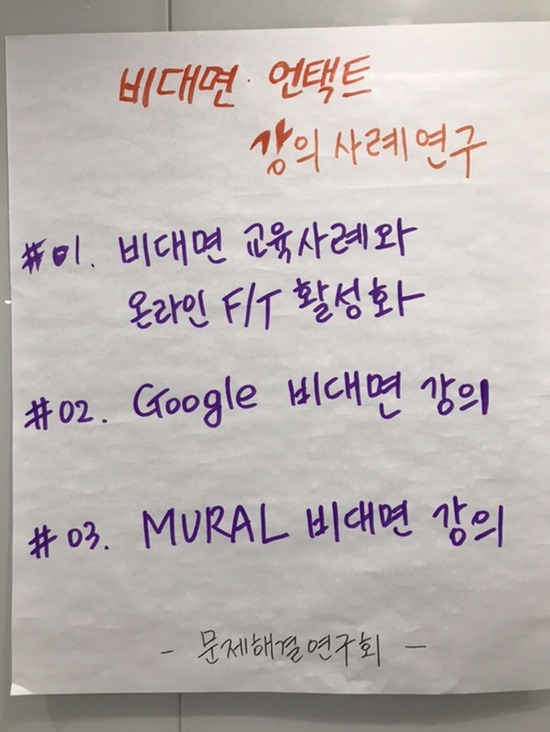 비대면·언택트
강의 사례연구
#01. 비대면 교육사례와
온라인 F/T 활성화
#02. Google 비대면 강의
#03. MURAL 비대면 강의
- 문제해결연구회 -